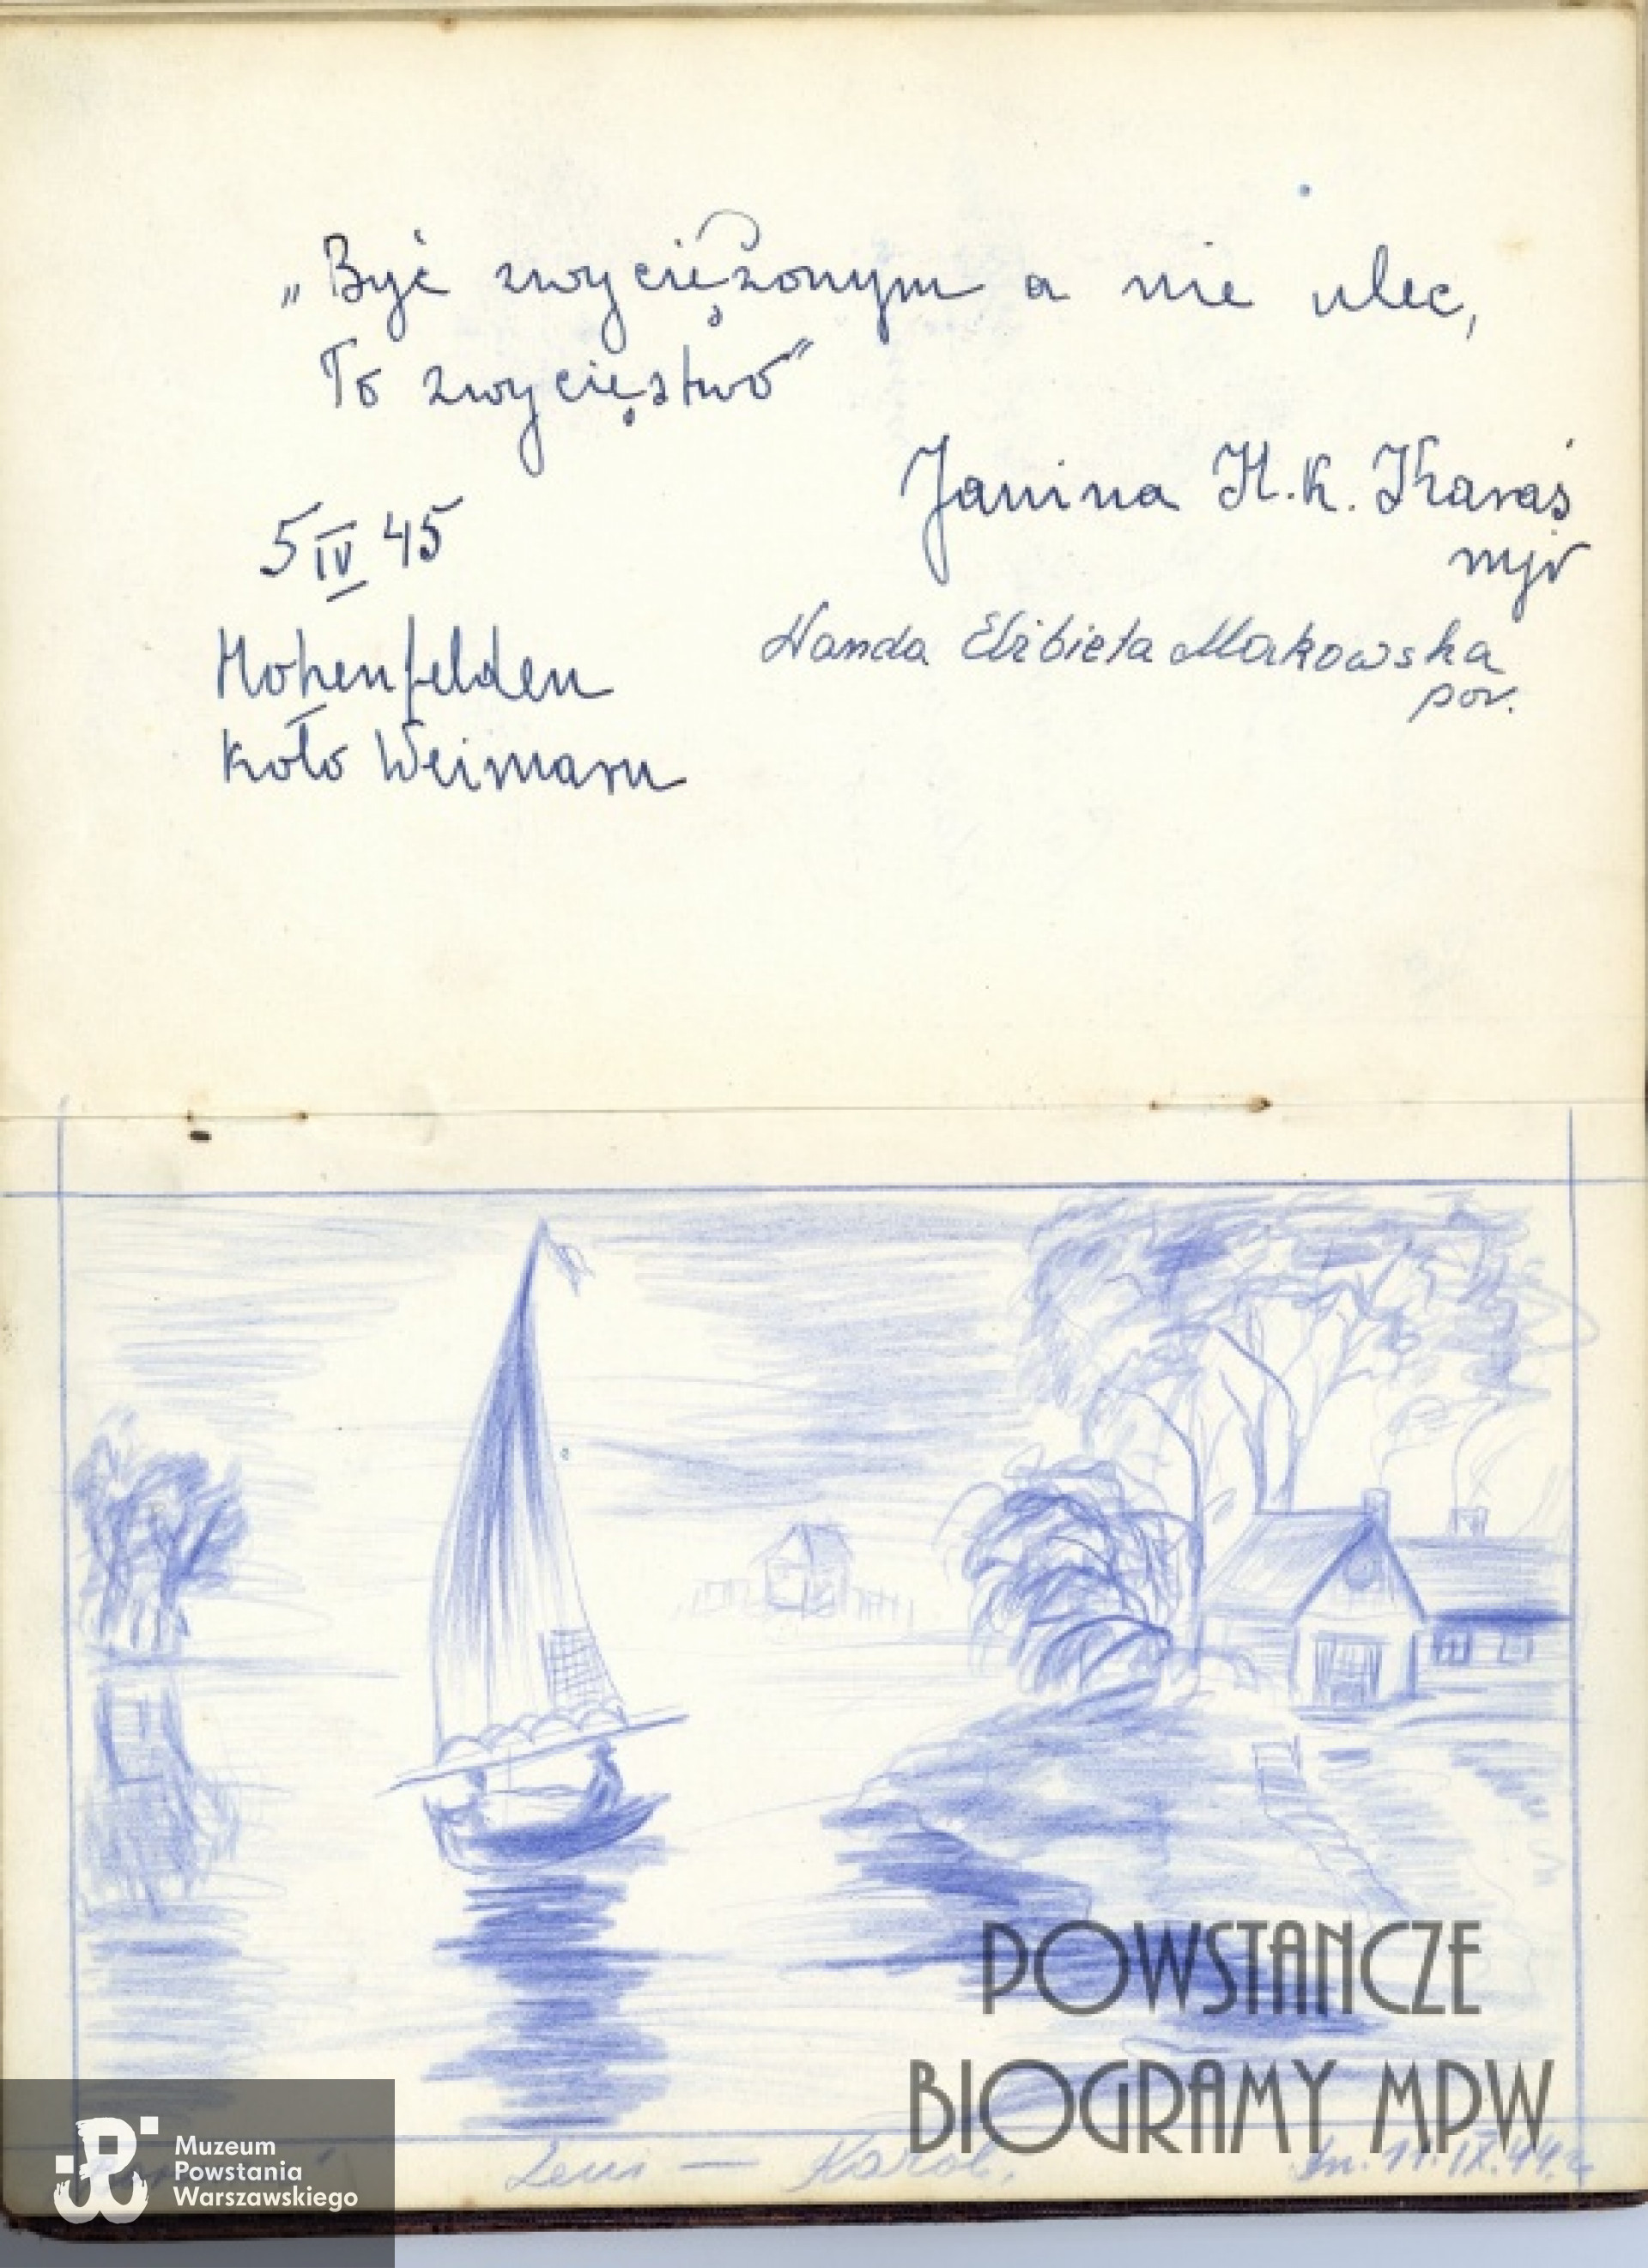 „Być zwyciężonym a nie ulec,
To zwycięstwo"
Janina H.K. Karaś
mjr
5 IV 45
Wanda Elżbieta Makowska
por.
Hohenfelden
koło Weimaru
POWSTAŃCZE
BIOGRAMY MPW
Leni — Karol.
dn. 11.IX.44.r
Muzeum
Powstania
Warszawskiego